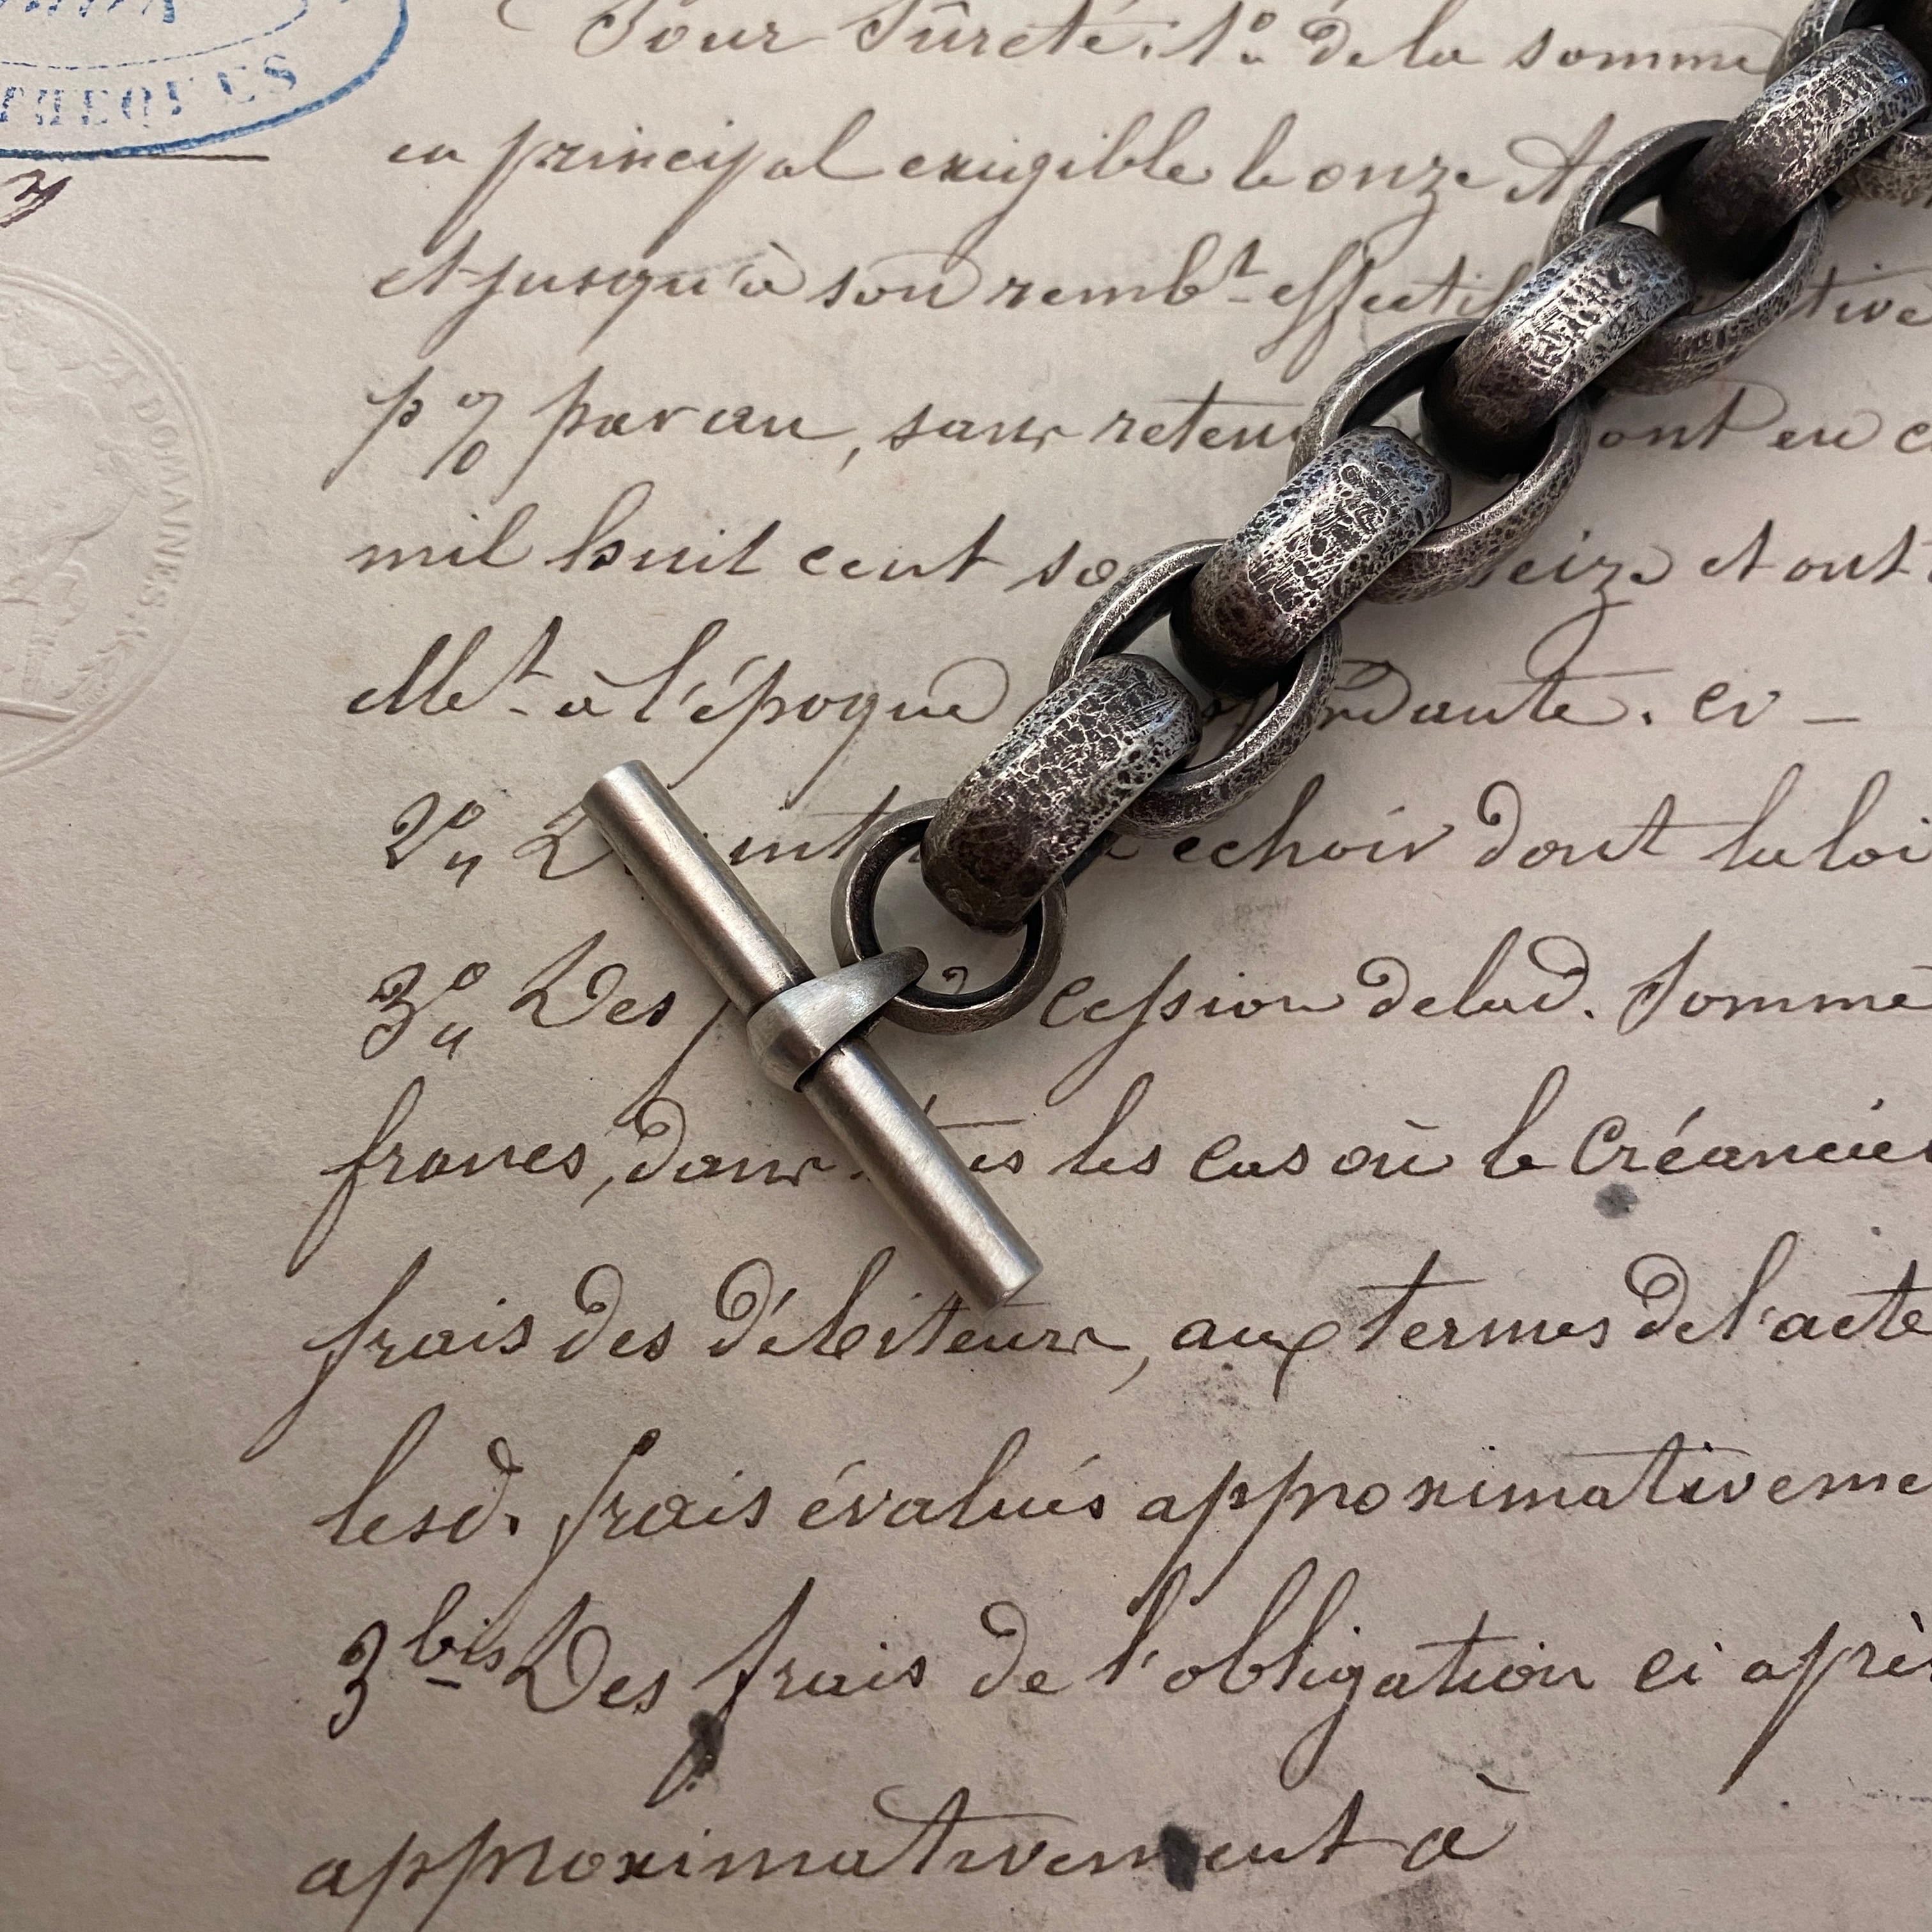 HYPOTHÈQUES
DOMAINES
Pour Sûreté: 1° de la somme
en principal exigible le onze
et jusqu'à son rembt effectif
p % par an, sans ont en
mil huit cent seize et ont
ellet à l'époque . ci –
2° echoir dont la loi
3° Des cession de lad. Somme
francs, dans les cas où le Créancier
frais des débiteurs, aux termes de l'acte
lesd. frais évalués approximativeme
3bis Des frais de l'obligation ci aprè
approximativement à